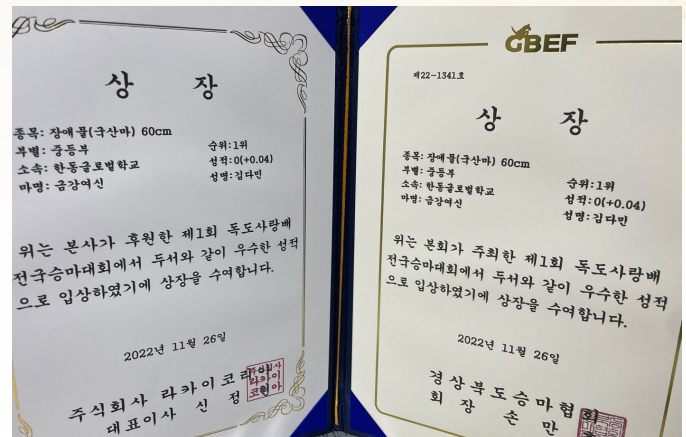 상 장
종목: 장애물(국산마) 60cm
부별: 중등부
소속: 한동글로벌학교
마명: 금강여신
순위:1위
성적:0(+0.04)
성명:김다민
위는 본사가 후원한 제1회 독도사랑배
전국승마대회에서 두서와 같이 우수한 성적
으로 입상하였기에 상장을 수여합니다.
2022년 11월 26일
주식회사 라카이코리아
대표이사 신 정
주식회사
라카이
코리아
GBEF
제22-1341호
상 장
종목: 장애물(국산마) 60cm
부별: 중등부
소속: 한동글로벌학교
마명: 금강여신
순위:1위
성적:0(+0.04)
성명:김다민
위는 본회가 주최한 제1회 독도사랑배
전국승마대회에서 두서와 같이 우수한 성적
으로 입상하였기에 상장을 수여합니다.
2022년 11월 26일
경상북도승마협회
회 장 손 만